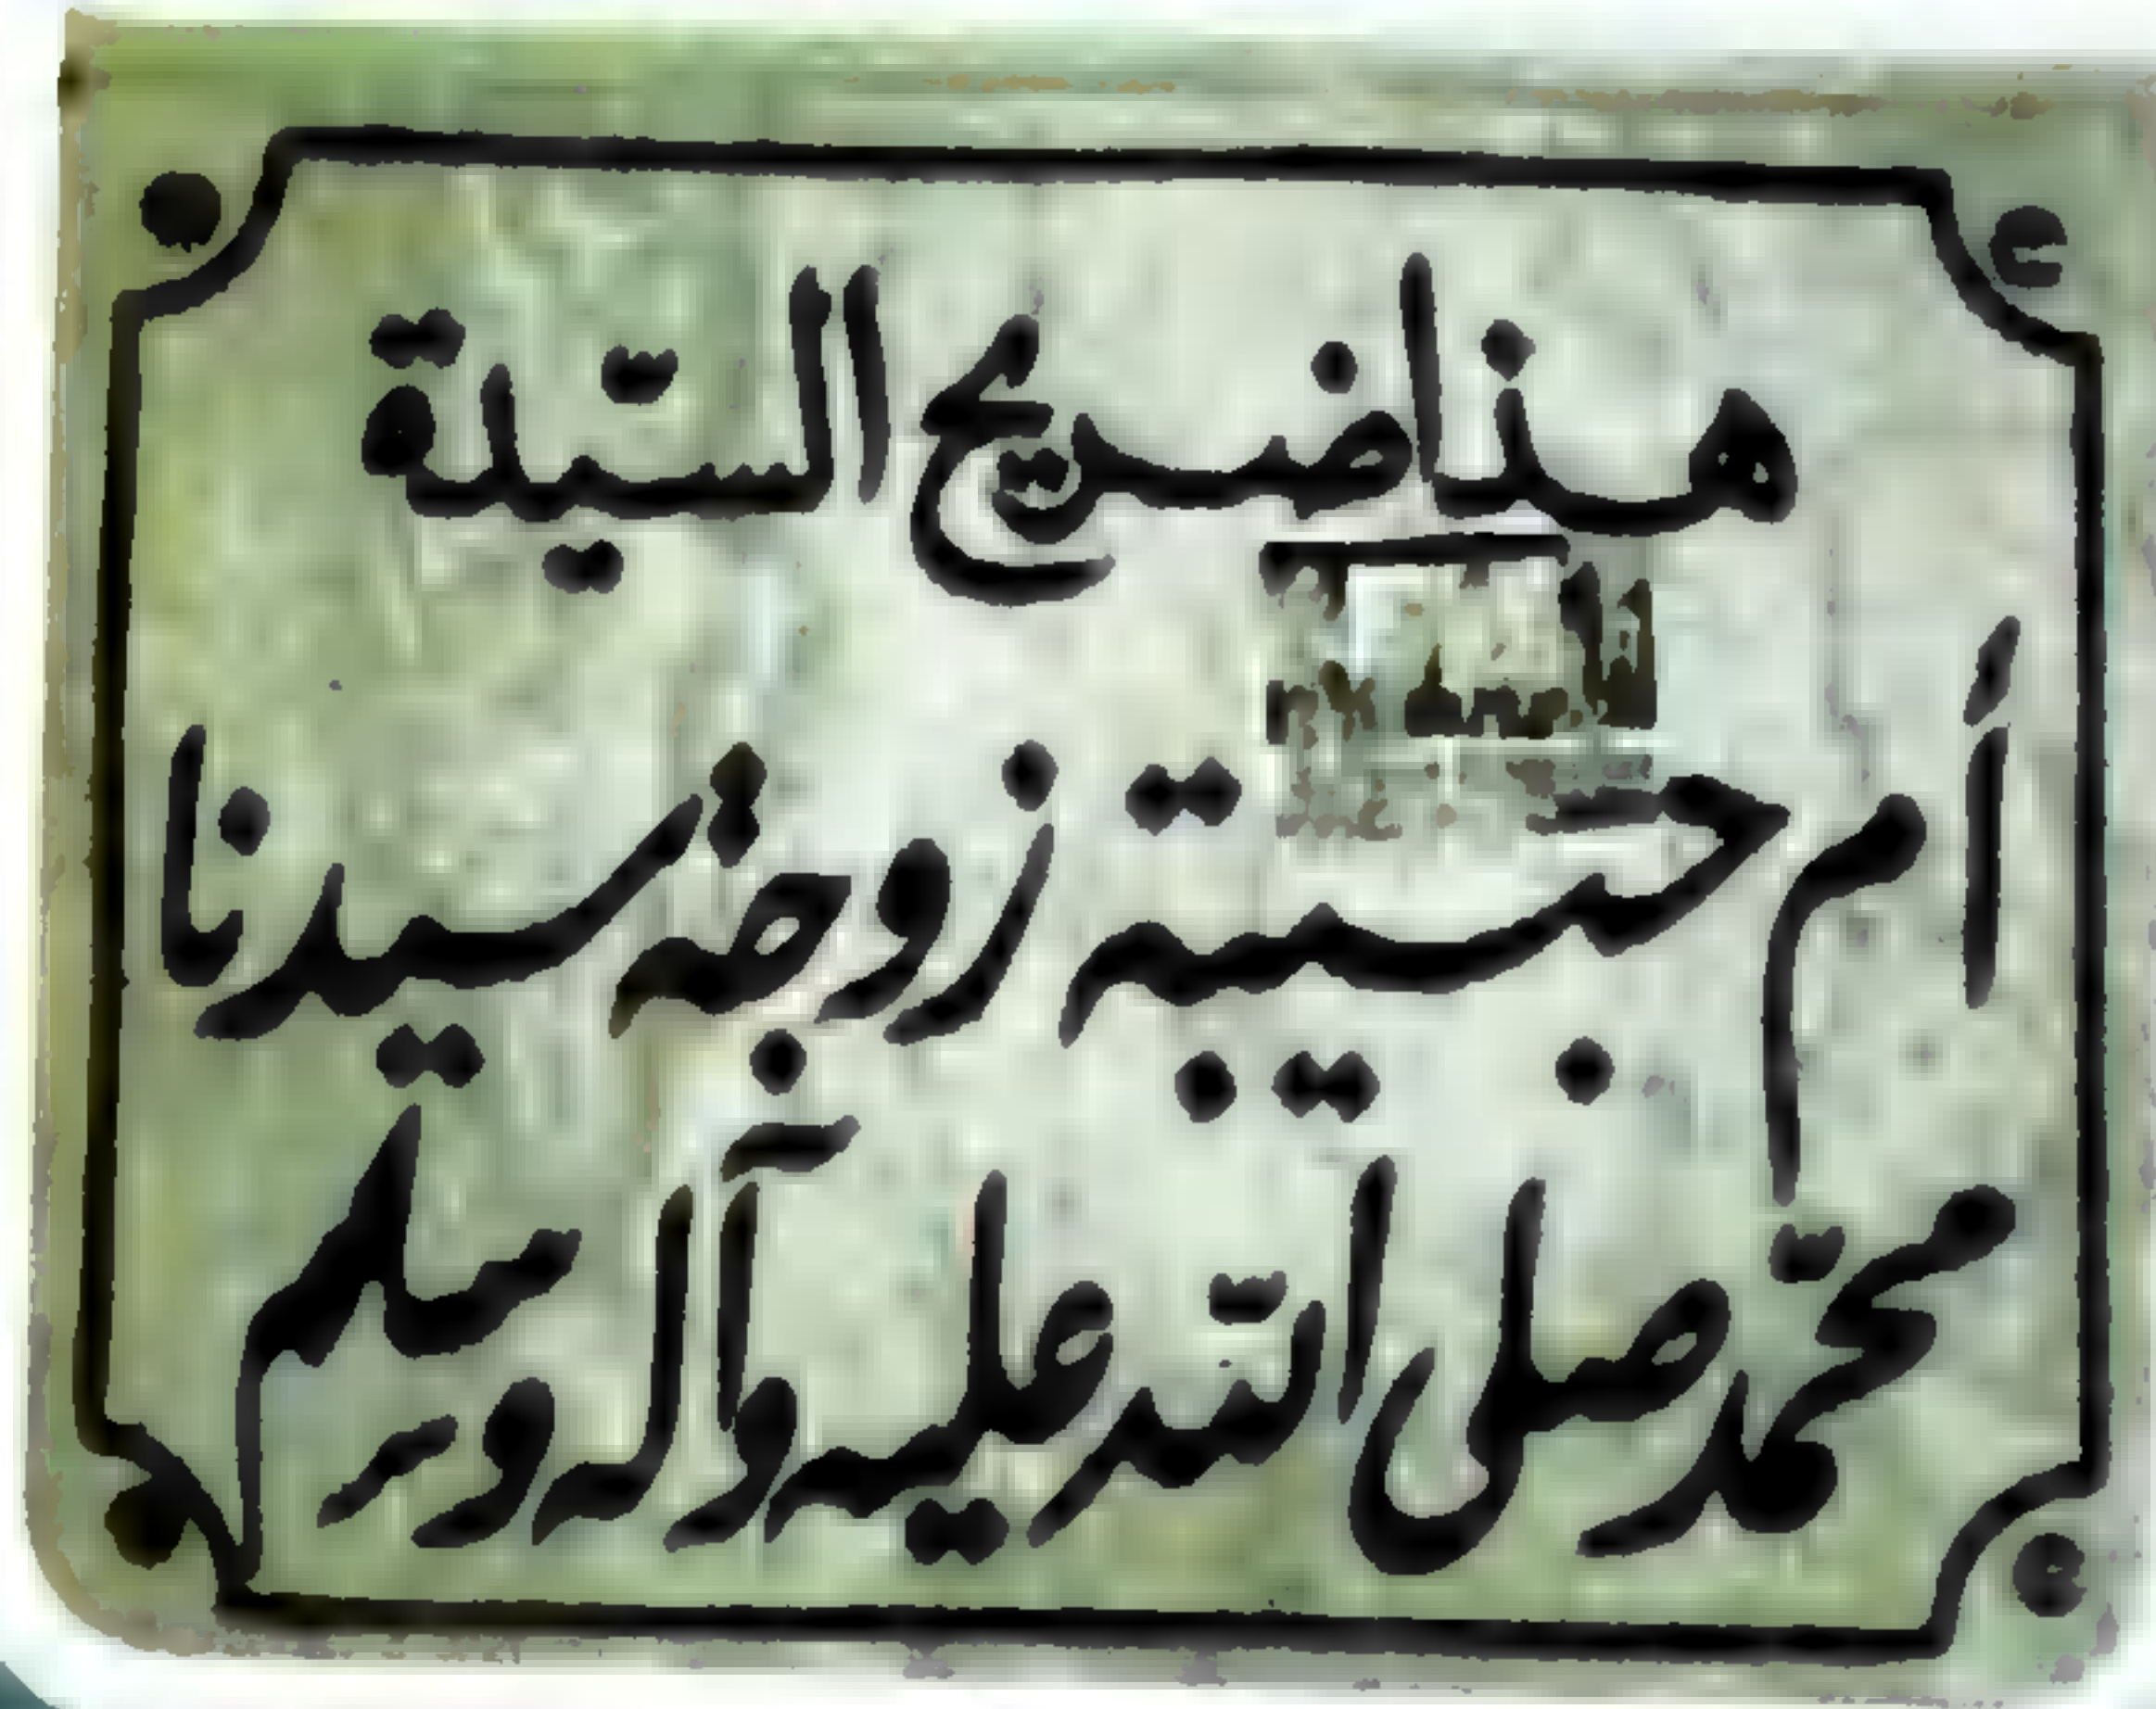 هذا ضريح السّيدة
أم حبيبة زوجة سيدنا
محمّد صلى الله عليه وآله وسلم